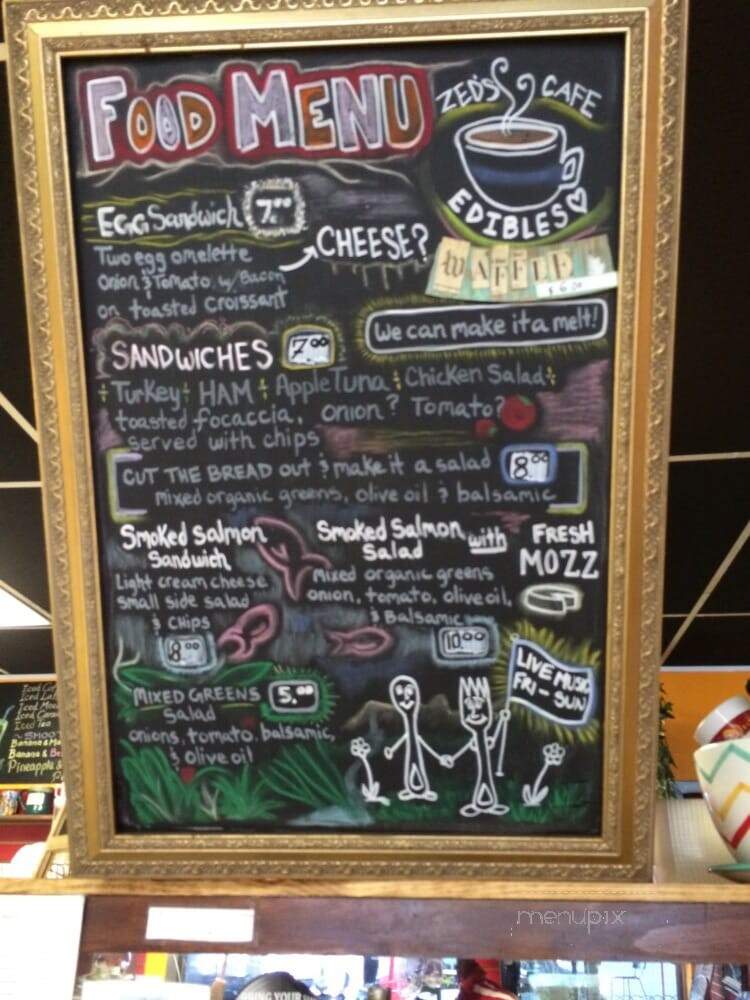 FOOD MENU
ZED'S CAFE
EDIBLES
WAFFLE
$6.00
EGG Sandwich 7.00
CHEESE?
Two egg omelette
onion & Tomato w/ Bacon
on toasted croissant
We can make it a melt!
SANDWICHES 7.00
Turkey HAM Apple Tuna Chicken Salad
toasted focaccia, onion? Tomato?
served with chips
CUT THE BREAD OUT & make it a salad 8.00
mixed organic greens, olive oil & balsamic
Smoked Salmon
Sandwich
Light cream cheese
small side salad
& CHIPS
8.00
Smoked Salmon with FRESH
Salad MOZZ
Mixed organic greens
onion, tomato, olive oil,
& Balsamic
10.00
MIXED GREENS 5.00
Salad
onions, tomato, balsamic,
& olive oil
LIVE MUSIC
FRI - SUN
Iced
Iced
Iced
Iced
Iced Tea
~SMOO
Banana &
Banana & 
Pineapple &
menupix
BRING YOUR